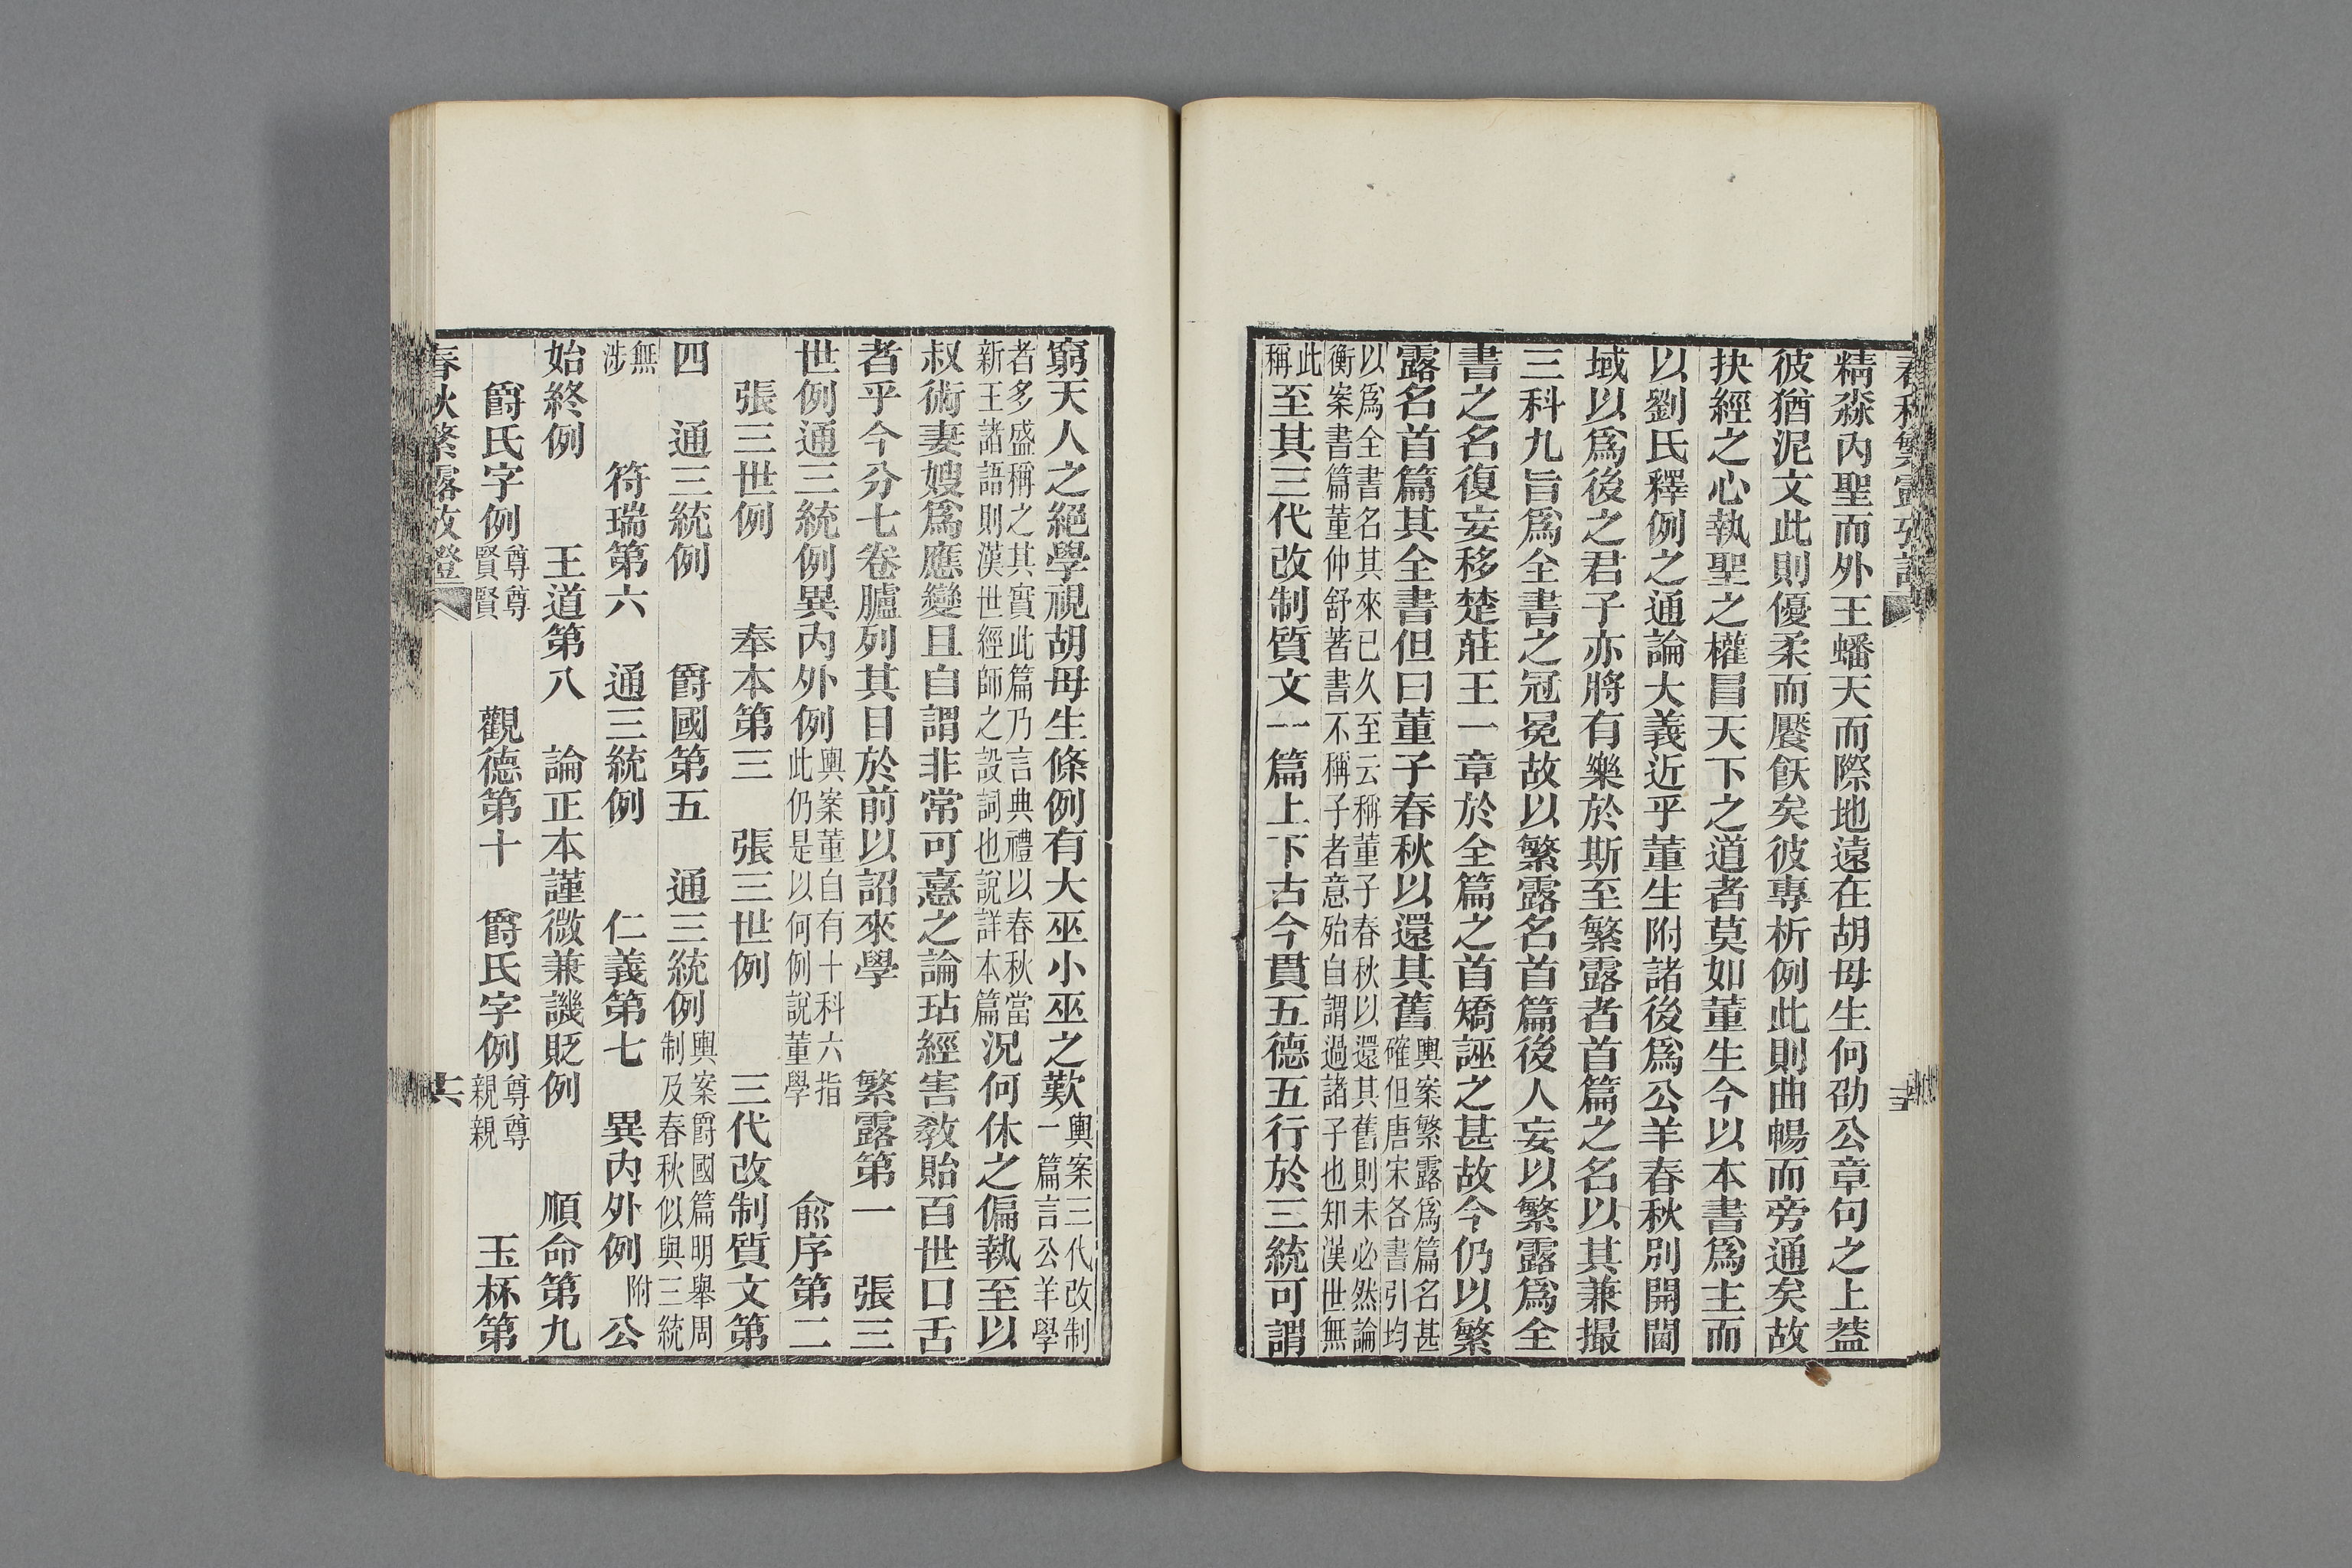 精淼內聖而外王蟠天而際地遠在胡毋生何劭公章句之上蓋
彼猶泥文此則優柔而饜飫矣彼專析例此則曲暢而旁通矣故
抉經之心執聖之權冒天下之道者莫如董生今以本書爲主而
以劉氏釋例之通論大義近乎董生附諸後爲公羊春秋別開閫
域以爲後之君子亦將有樂於斯至繁露者首篇之名以其兼撮
三科九旨爲全書之冠冕故以繁露名首篇後人妄以繁露爲全
書之名復妄移楚莊王一章於全篇之首矯誣之甚故今仍以繁
露名首篇其全書但曰董子春秋以還其舊輿案繁露爲篇名甚確但唐宋各書引均
以爲全書名其來已久至云稱董子春秋以還其舊則未必然論
衡案書篇董仲舒著書不稱子者意殆自謂過諸子也知漢世無
此稱至其三代改制質文一篇上下古今貫五德五行於三統可謂
窮天人之絕學視胡毋生條例有大巫小巫之歎輿案三代改制一篇言公羊學
者多盛稱之其實此篇乃言典禮以春秋當
新王諸語則漢世經師之設詞也說詳本篇況何休之偏執至以
叔術妻嫂爲應變且自謂非常可憙之論玷經害教貽百世口舌
者乎今分七卷臚列其目於前以詔來學　繁露第一　張三
世例通三統例異內外例輿案董自有十科六指此仍是以何例說董學　俞序第二
張三世例　奉本第三　張三世例　三代改制質文第
四　通三統例　爵國第五　通三統例輿案爵國篇明舉周制及春秋似與三統
無涉　符瑞第六　通三統例　仁義第七　異內外例附公
始終例　王道第八　論正本謹微兼譏貶例　順命第九
爵氏字例尊尊賢賢　觀德第十　爵氏字例尊尊親親　玉杯第
春秋繁露攷證　六